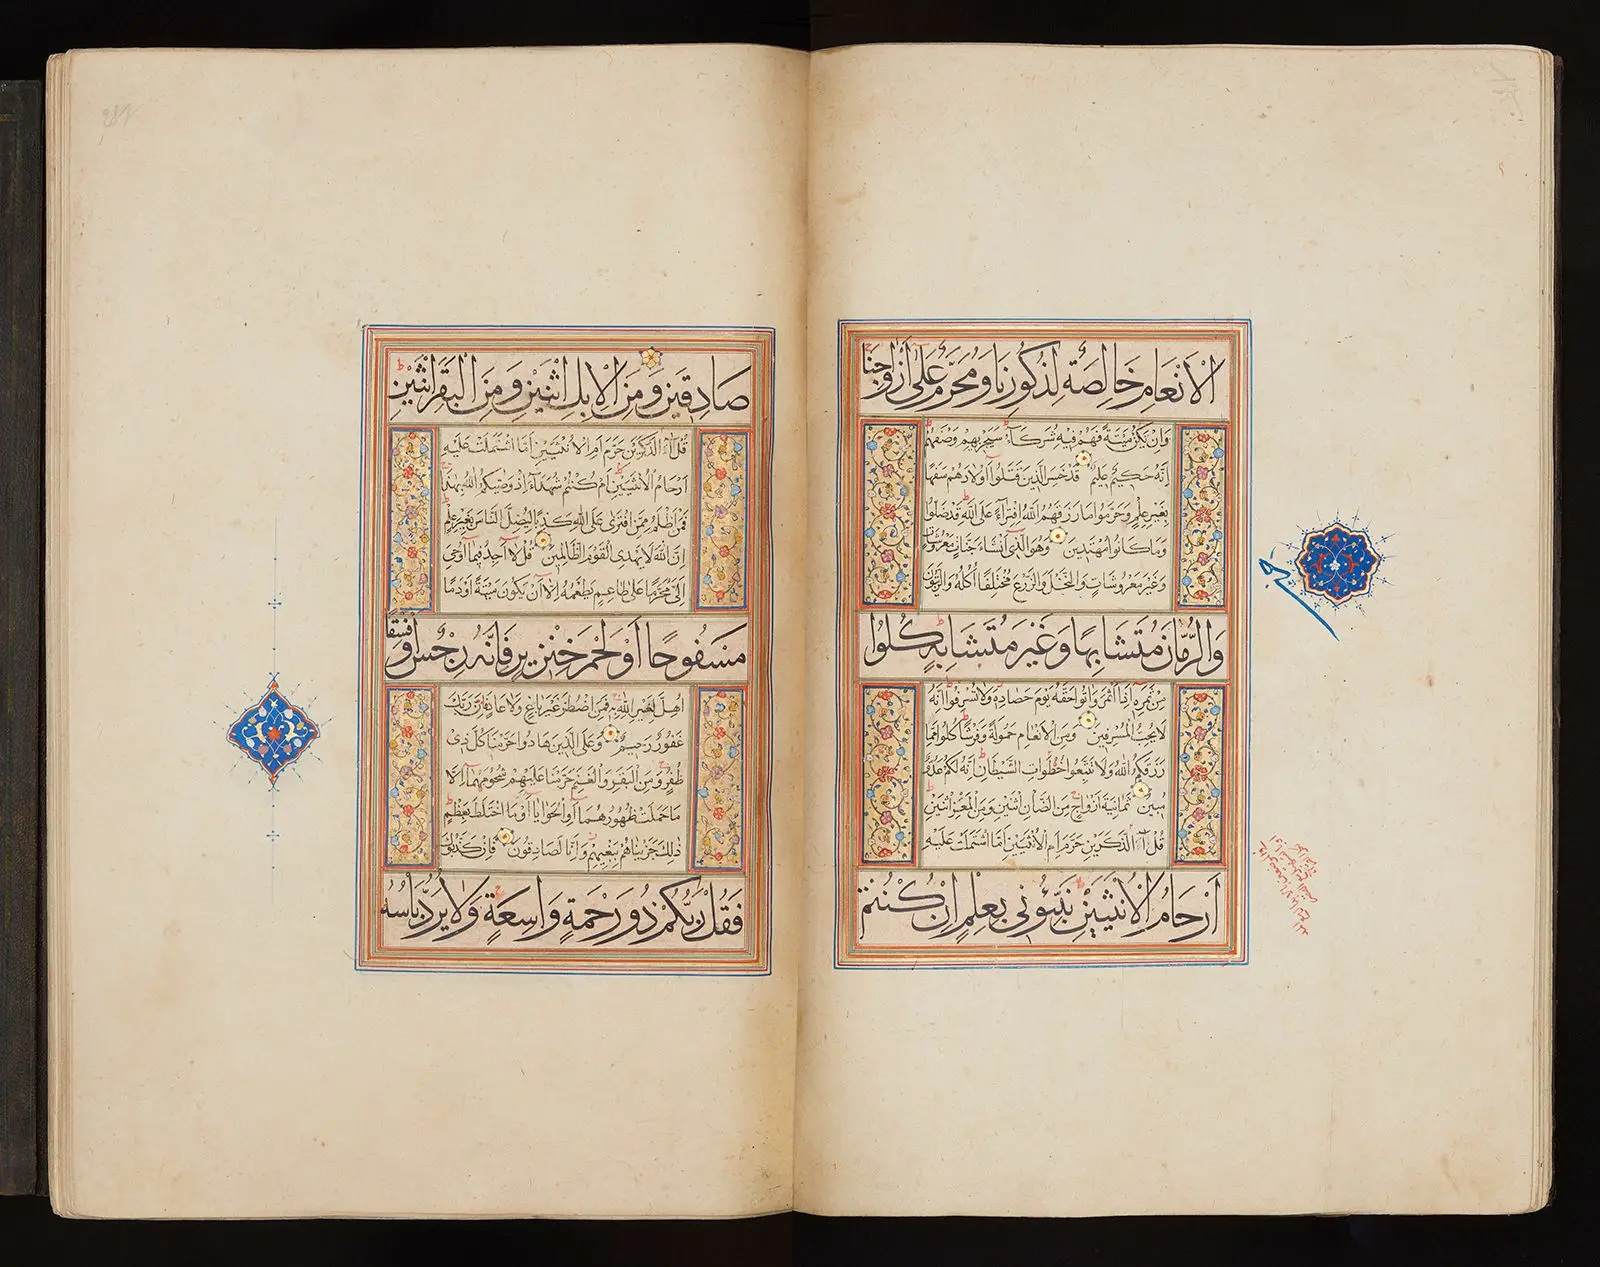 الْأَنْعَامِ خَالِصَةٌ لِذُكُورِنَا وَمُحَرَّمٌ عَلَى أَزْوَاجِنَا
وَإِنْ يَكُنْ مَيْتَةً فَهُمْ فِيهِ شُرَكَاءُ سَيَجْزِيهِمْ وَصْفَهُمْ
إِنَّهُ حَكِيمٌ عَلِيمٌ قَدْ خَسِرَ الَّذِينَ قَتَلُوا أَوْلَادَهُمْ سَفَهًا
بِغَيْرِ عِلْمٍ وَحَرَّمُوا مَا رَزَقَهُمُ اللَّهُ افْتِرَاءً عَلَى اللَّهِ قَدْ ضَلُّوا
وَمَا كَانُوا مُهْتَدِينَ وَهُوَ الَّذِي أَنْشَأَ جَنَّاتٍ مَعْرُوشَاتٍ
وَغَيْرَ مَعْرُوشَاتٍ وَالنَّخْلَ وَالزَّرْعَ مُخْتَلِفًا أُكُلُهُ وَالزَّيْتُونَ
وَالرُّمَّانَ مُتَشَابِهًا وَغَيْرَ مُتَشَابِهٍ كُلُوا
مِنْ ثَمَرِهِ إِذَا أَثْمَرَ وَآتُوا حَقَّهُ يَوْمَ حَصَادِهِ وَلَا تُسْرِفُوا إِنَّهُ
لَا يُحِبُّ الْمُسْرِفِينَ وَمِنَ الْأَنْعَامِ حَمُولَةً وَفَرْشًا كُلُوا مِمَّا
رَزَقَكُمُ اللَّهُ وَلَا تَتَّبِعُوا خُطُوَاتِ الشَّيْطَانِ إِنَّهُ لَكُمْ عَدُوٌّ
مُبِينٌ ثَمَانِيَةَ أَزْوَاجٍ مِنَ الضَّأْنِ اثْنَيْنِ وَمِنَ الْمَعْزِ اثْنَيْنِ
قُلْ آلذَّكَرَيْنِ حَرَّمَ أَمِ الْأُنْثَيَيْنِ أَمَّا اشْتَمَلَتْ عَلَيْهِ
أَرْحَامُ الْأُنْثَيَيْنِ نَبِّئُونِي بِعِلْمٍ إِنْ كُنْتُمْ
صَادِقِينَ وَمِنَ الْإِبِلِ اثْنَيْنِ وَمِنَ الْبَقَرِ اثْنَيْنِ
قُلْ آلذَّكَرَيْنِ حَرَّمَ أَمِ الْأُنْثَيَيْنِ أَمَّا اشْتَمَلَتْ عَلَيْهِ
أَرْحَامُ الْأُنْثَيَيْنِ أَمْ كُنْتُمْ شُهَدَاءَ إِذْ وَصَّاكُمُ اللَّهُ بِهَذَا
فَمَنْ أَظْلَمُ مِمَّنِ افْتَرَى عَلَى اللَّهِ كَذِبًا لِيُضِلَّ النَّاسَ بِغَيْرِ عِلْمٍ
إِنَّ اللَّهَ لَا يَهْدِي الْقَوْمَ الظَّالِمِينَ قُلْ لَا أَجِدُ فِيمَا أُوحِيَ
إِلَيَّ مُحَرَّمًا عَلَى طَاعِمٍ يَطْعَمُهُ إِلَّا أَنْ يَكُونَ مَيْتَةً أَوْ دَمًا
مَسْفُوحًا أَوْ لَحْمَ خِنْزِيرٍ فَإِنَّهُ رِجْسٌ أَوْ فِسْقًا
أُهِلَّ لِغَيْرِ اللَّهِ بِهِ فَمَنِ اضْطُرَّ غَيْرَ بَاغٍ وَلَا عَادٍ فَإِنَّ رَبَّكَ
غَفُورٌ رَحِيمٌ وَعَلَى الَّذِينَ هَادُوا حَرَّمْنَا كُلَّ ذِي
ظُفُرٍ وَمِنَ الْبَقَرِ وَالْغَنَمِ حَرَّمْنَا عَلَيْهِمْ شُحُومَهُمَا إِلَّا
مَا حَمَلَتْ ظُهُورُهُمَا أَوِ الْحَوَايَا أَوْ مَا اخْتَلَطَ بِعَظْمٍ
ذَلِكَ جَزَيْنَاهُمْ بِبَغْيِهِمْ وَإِنَّا لَصَادِقُونَ فَإِنْ كَذَّبُوكَ
فَقُلْ رَبُّكُمْ ذُو رَحْمَةٍ وَاسِعَةٍ وَلَا يُرَدُّ بَأْسُهُ